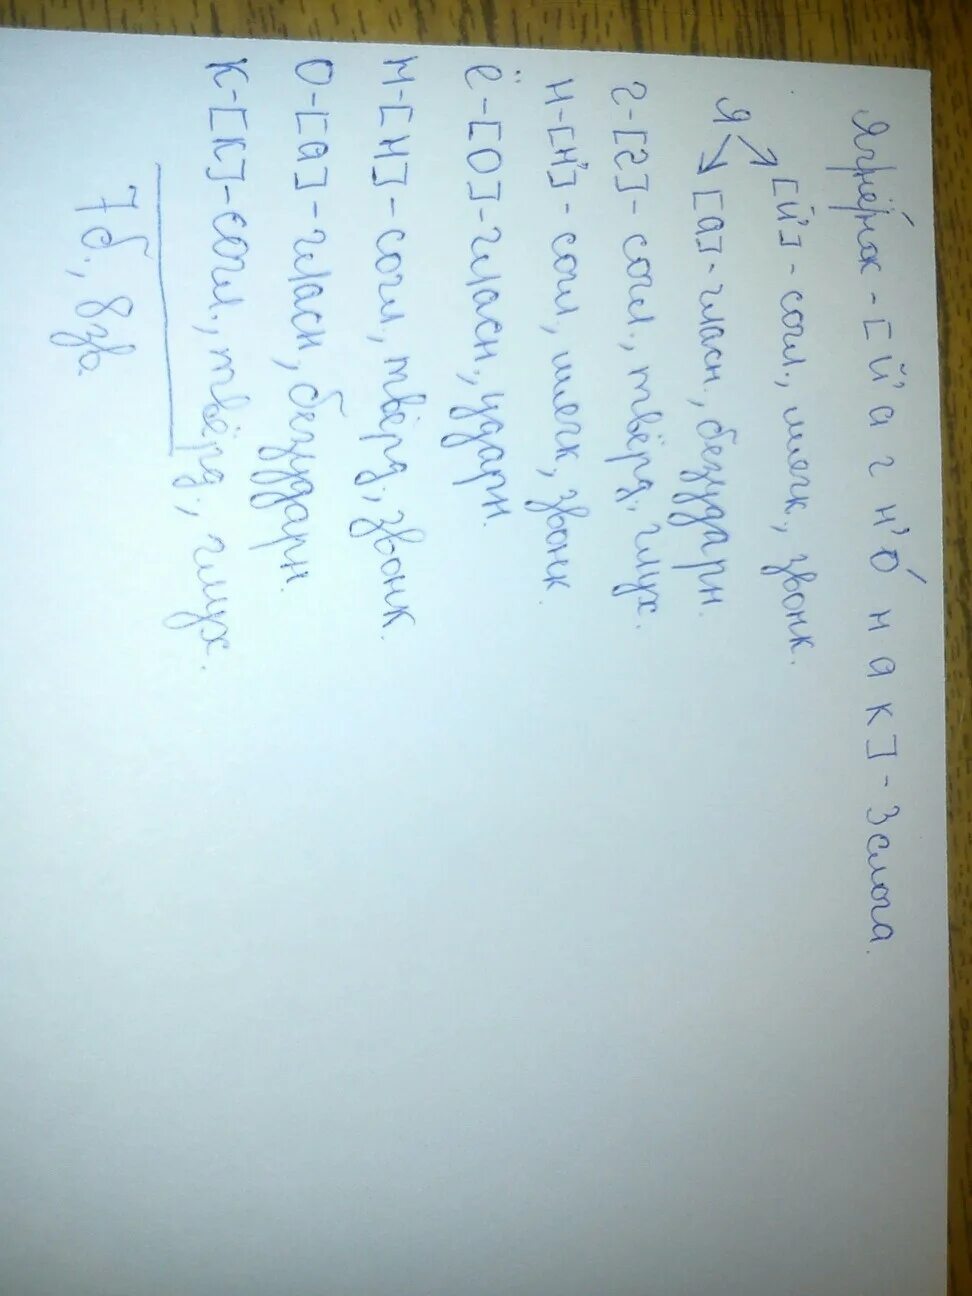 Ягнёнок - [й' а г н' о́ н а к] - 3 слога.
Я [й'] - согл., мягк., звонк.
[а] - гласн., безударн.
г - [г] - согл., твёрд., глух.
н - [н'] - согл., мягк., звонк.
ё - [о] - гласн., ударн.
н - [н] - согл., твёрд., звонк.
о - [а] - гласн., безударн.
к - [к] - согл., твёрд., глух.
7 б., 8 зв.